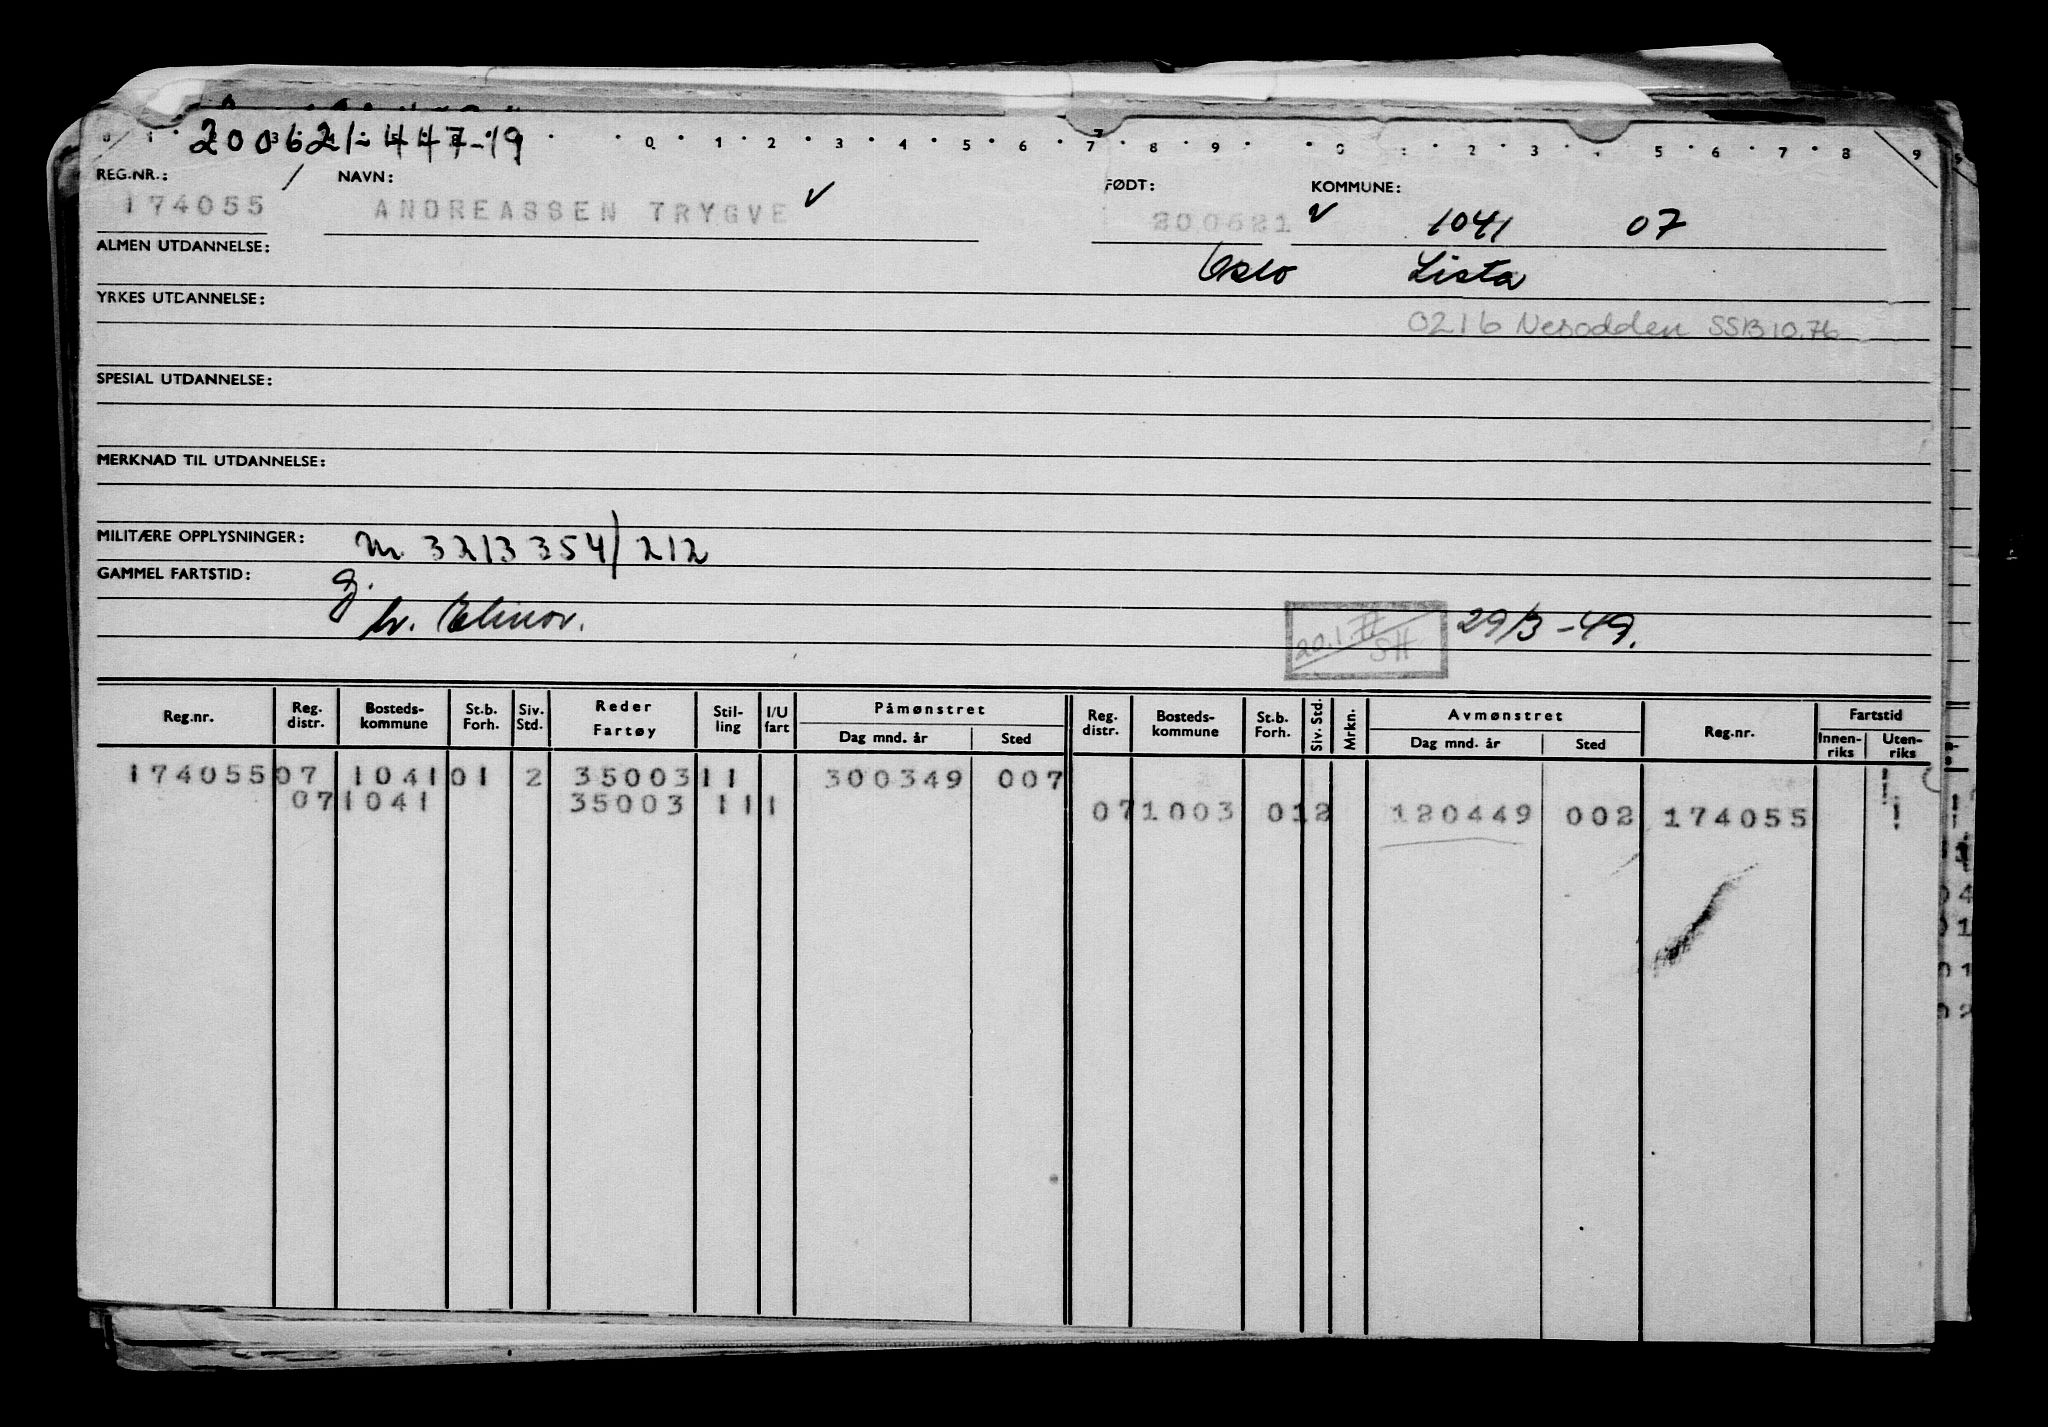 200621-447-19
0 1 2 3 4 5 6 7 8 9 0 1 2 3 4 5 6 7 8 9
REG.NR.: NAVN: FØDT: KOMMUNE:
174055 ANDREASSEN TRYGVE 200621 1041 07
ALMEN UTDANNELSE: Oslo Lista
YRKES UTDANNELSE:
0216 Nesodden SSB 10.76
SPESIAL UTDANNELSE:
MERKNAD TIL UTDANNELSE:
MILITÆRE OPPLYSNINGER: M. 3213354/212
GAMMEL FARTSTID: g.
h. Elinor. 20.1.71 SH 29/3-49.
Reg.nr. Reg. distr. Bosteds-kommune St.b. Forh. Siv. Std. Reder Fartøy Stil-ling I/U fart Påmønstret Dag mnd. år Sted Reg. distr. Bosteds-kommune St.b. Forh. Siv. Std. Mrkn. Avmønstret Dag mnd. år Sted Reg.nr. Fartstid Innen-riks Uten-riks
174055 07 1041 01 2 35003 11 300349 007
07 1041 35003 11 1 07 1003 01 2 120449 002 174055